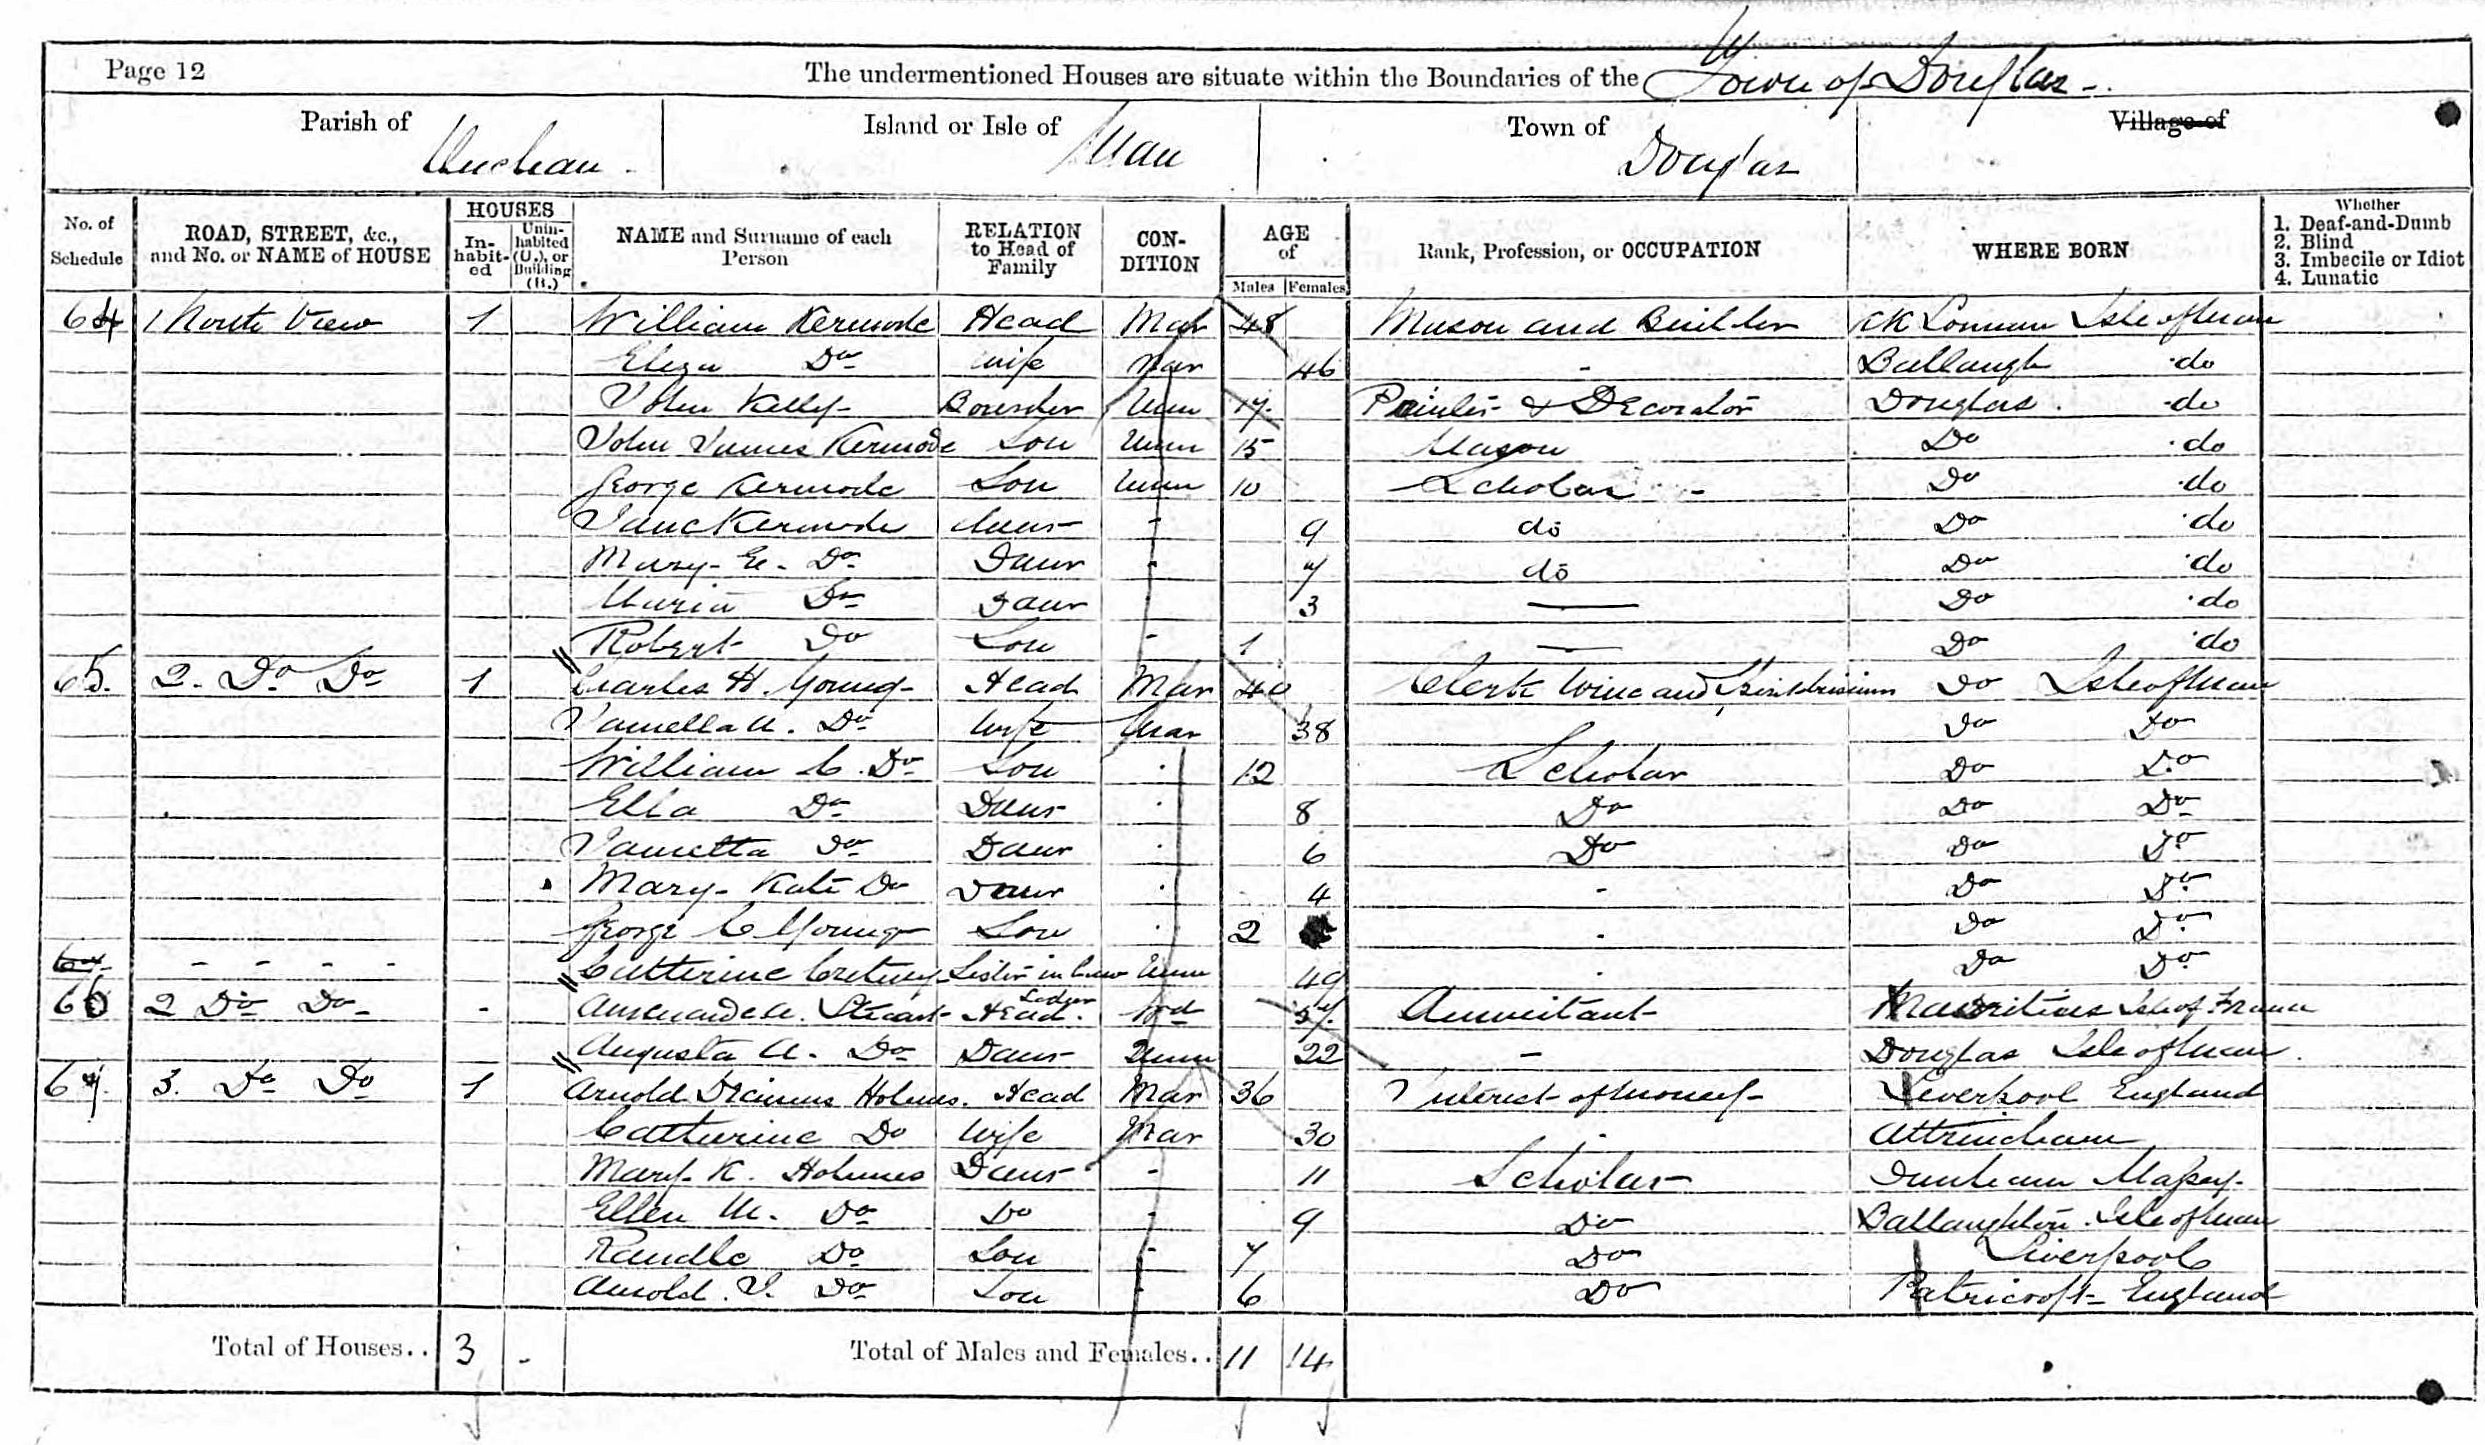 Page 12 The undermentioned Houses are situate within the Boundaries of the Town of Douglas -.
Parish of Onchan - Island or Isle of Man Town of Douglas Village of
No. of Schedule ROAD, STREET, &c., and No. or NAME of HOUSE HOUSES In-habit-ed Unin-habited (U.), or Building (B.) NAME and Surname of each Person RELATION to Head of Family CON-DITION AGE of Males Females Rank, Profession, or OCCUPATION WHERE BORN Whether 1. Deaf-and-Dumb 2. Blind 3. Imbecile or Idiot 4. Lunatic
64 1 North View 1 William Kermode Head Mar 48 Mason and Builder KK Lonnan Isle of Man
Eliza Do Wife Mar 46 - Ballaugh do
John Kelly Boarder Unm 17 Painter & Decorator Douglas do
John James Kermode Son Unm 15 Mason Do do
George Kermode Son Unm 10 Scholar - Do do
Jane Kermode Daur - 9 do Do do
Mary E. Do Daur - 7 do Do do
Maria Do Daur - 3 — Do do
Robert Do Son - 1 — Do do
65. 2. Do Do 1 Charles H. Young Head Mar 40 Clerk Wine and Do Isle of Man
A. Do Wife Mar 38 Do Do
William C. Do Son 12 Scholar Do Do
Ella Do Daur 8 Do Do Do
Do Daur 6 Do Do Do
Mary Kate Do Daur 4 - Do Do
George C Young Son 2 Do Do
67 - - - - Catherine Cretney Sister in law Unm 49 Do Do
66 2 Do Do - A. Stewart Head Lodger Wd 57 Annuitant Mauritius Isle of France
Augusta A. Do Daur Unm 22 - Douglas Isle of Man
67. 3. Do Do 1 Arnold Holmes. Head Mar 36 Interest of Money Liverpool England
Catherine Do Wife Mar 30 Altrincham
Mary K. Holmes Daur - 11 Scholar Dunham Massey
Ellen M. Do Do - 9 Do Ballaughton Isle of Man
Randle Do Son - 7 Do Liverpool
Arnold. J. Do Son - 6 Do Patricroft England
Total of Houses.. 3 - Total of Males and Females.. 11 14